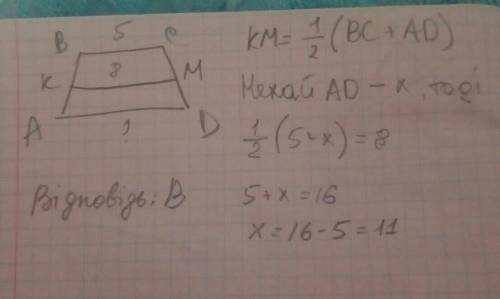 B 5 C
K 8 M
A ? D
KM = 1/2 (BC + AD)
Нехай AD – x, тоді
1/2 (5 + x) = 8
5 + x = 16
x = 16 - 5 = 11
Відповідь: В